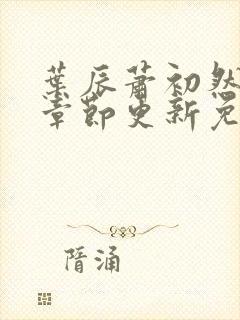 葉辰蕭初然
章節更新免
隋涌